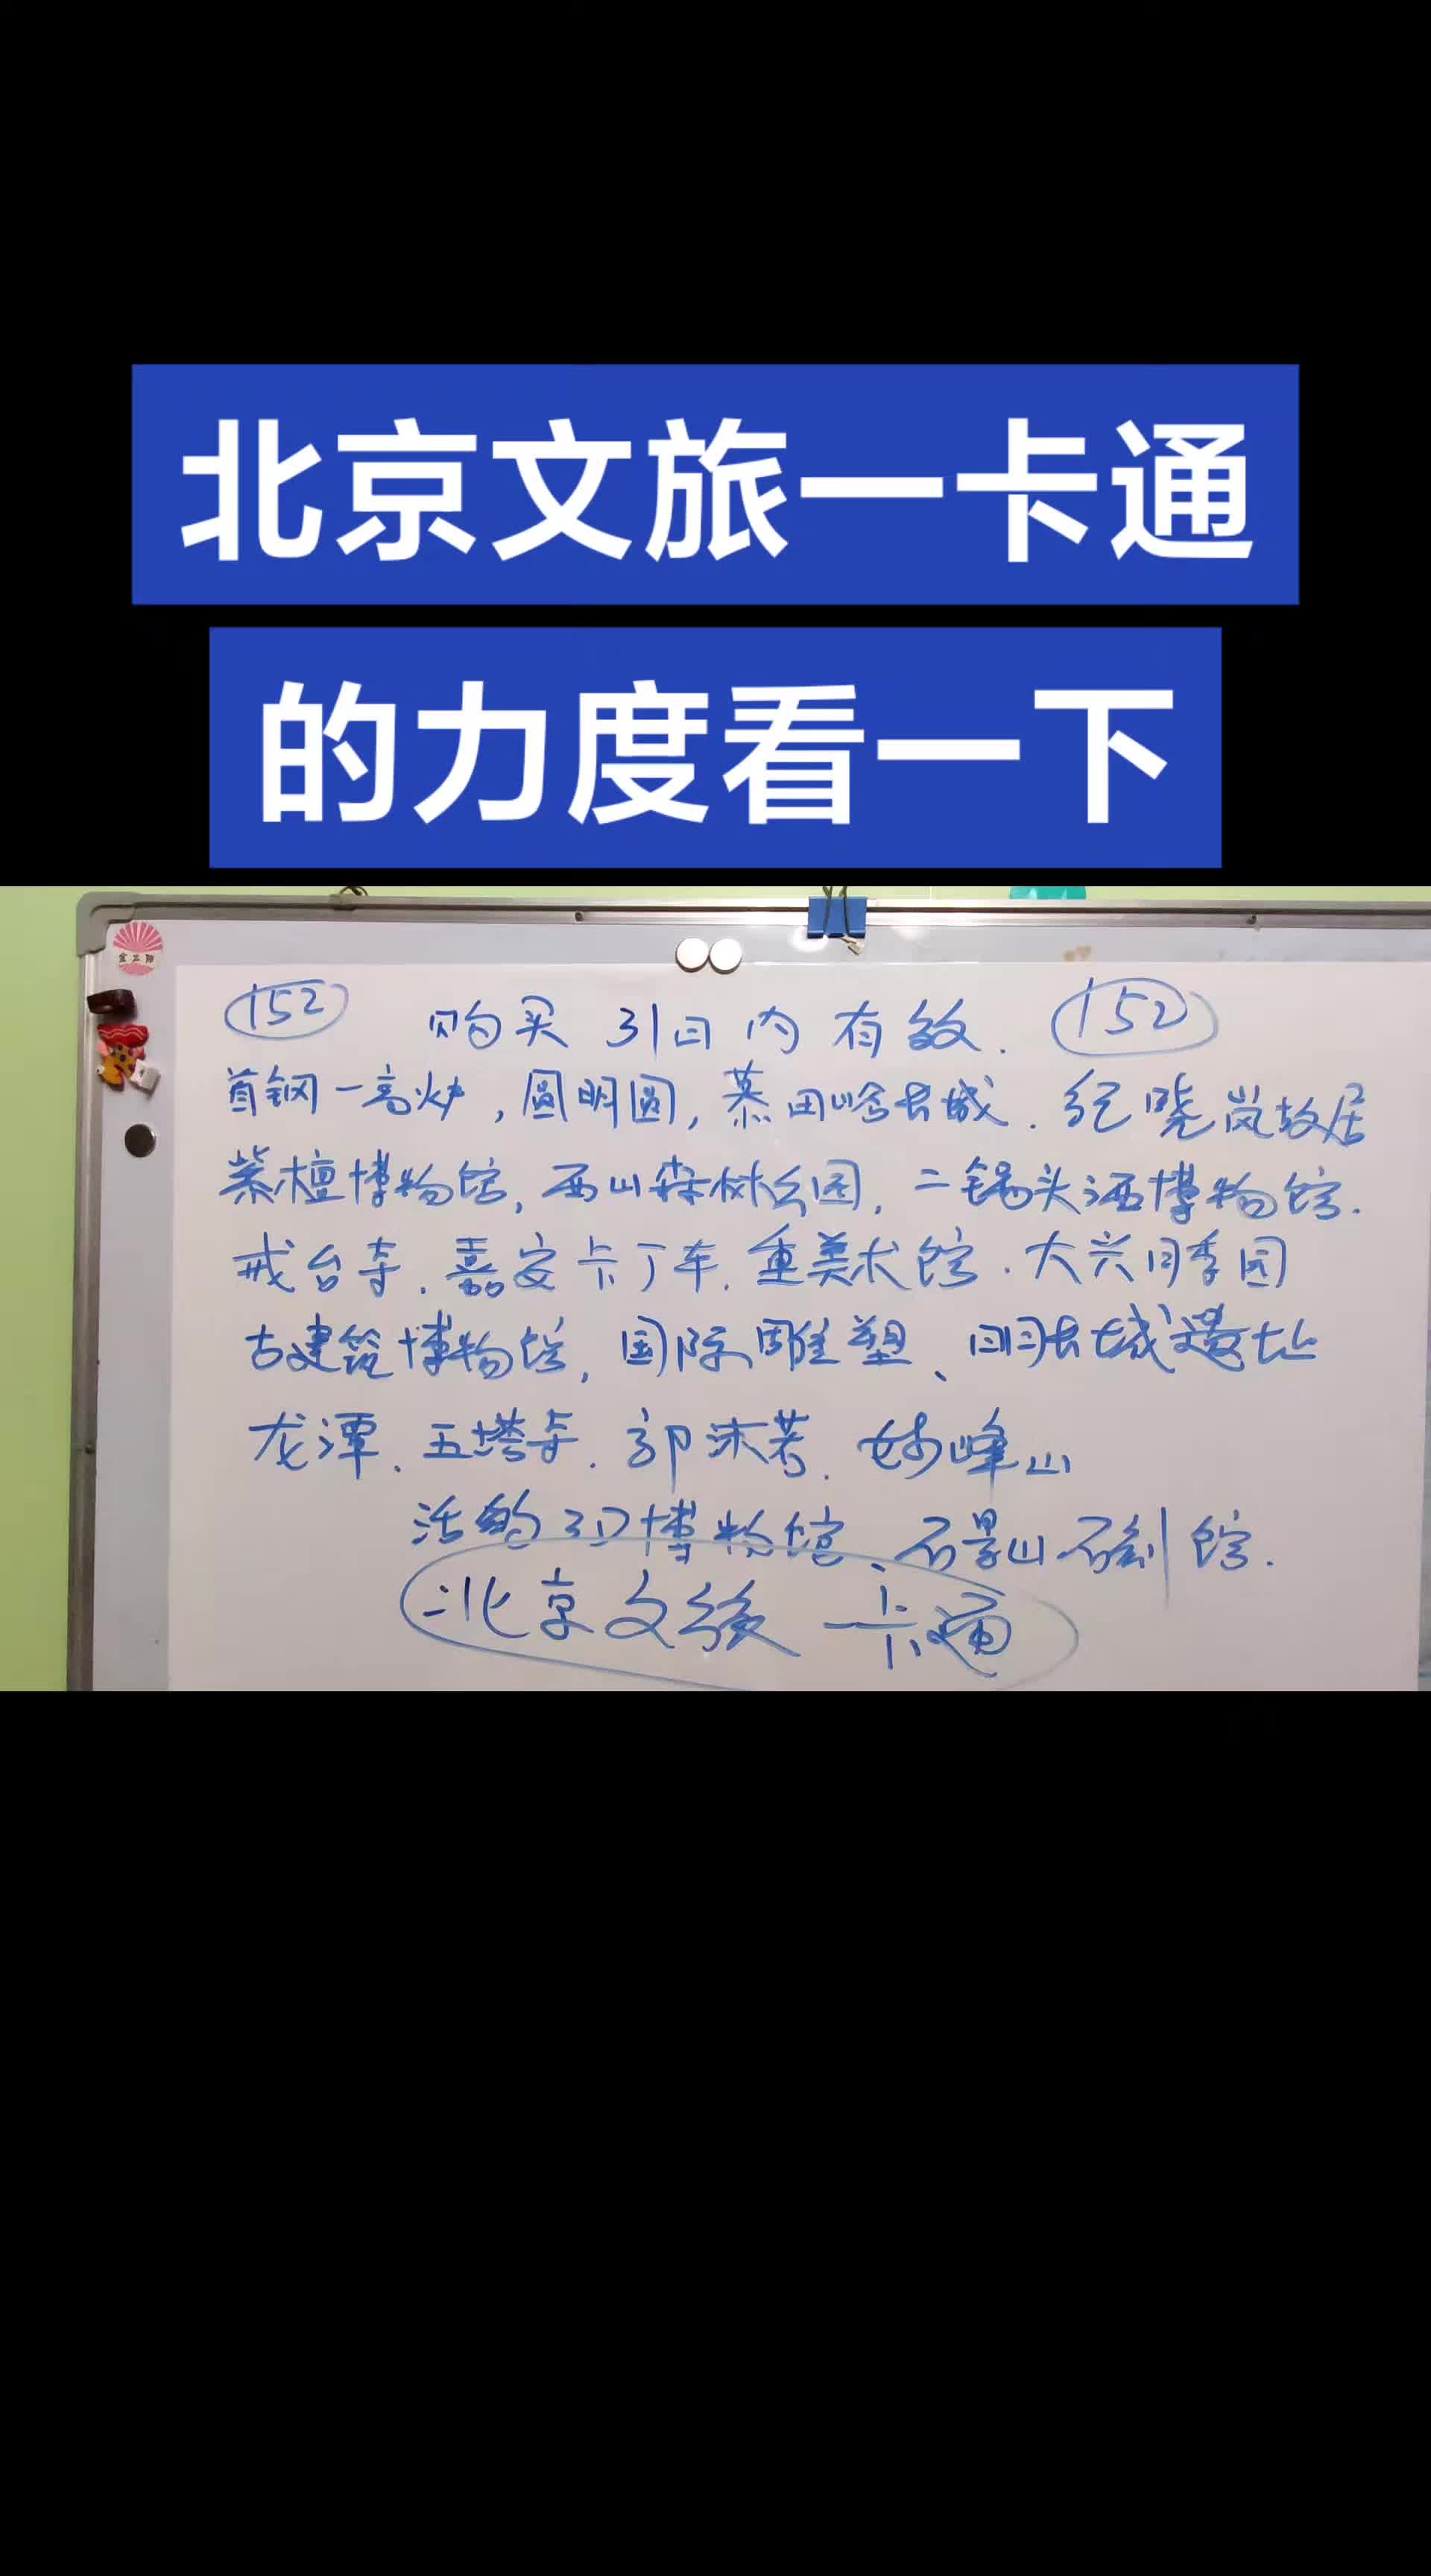 北京文旅一卡通
的力度看一下
金正阳
152 购买 31日内有效. 152
首钢一高炉,圆明圆,慕田峪长城.纪晓岚故居
紫檀博物馆,西山森林公园,二锅头酒博物馆.
戒台寺.嘉安卡丁车.重美术馆.大兴月季园
古建筑博物馆,国际雕塑、明长城遗址
龙潭.五塔寺.郭沫若.妙峰山
活的3D博物馆、石景山石刻馆.
北京文旅一卡通